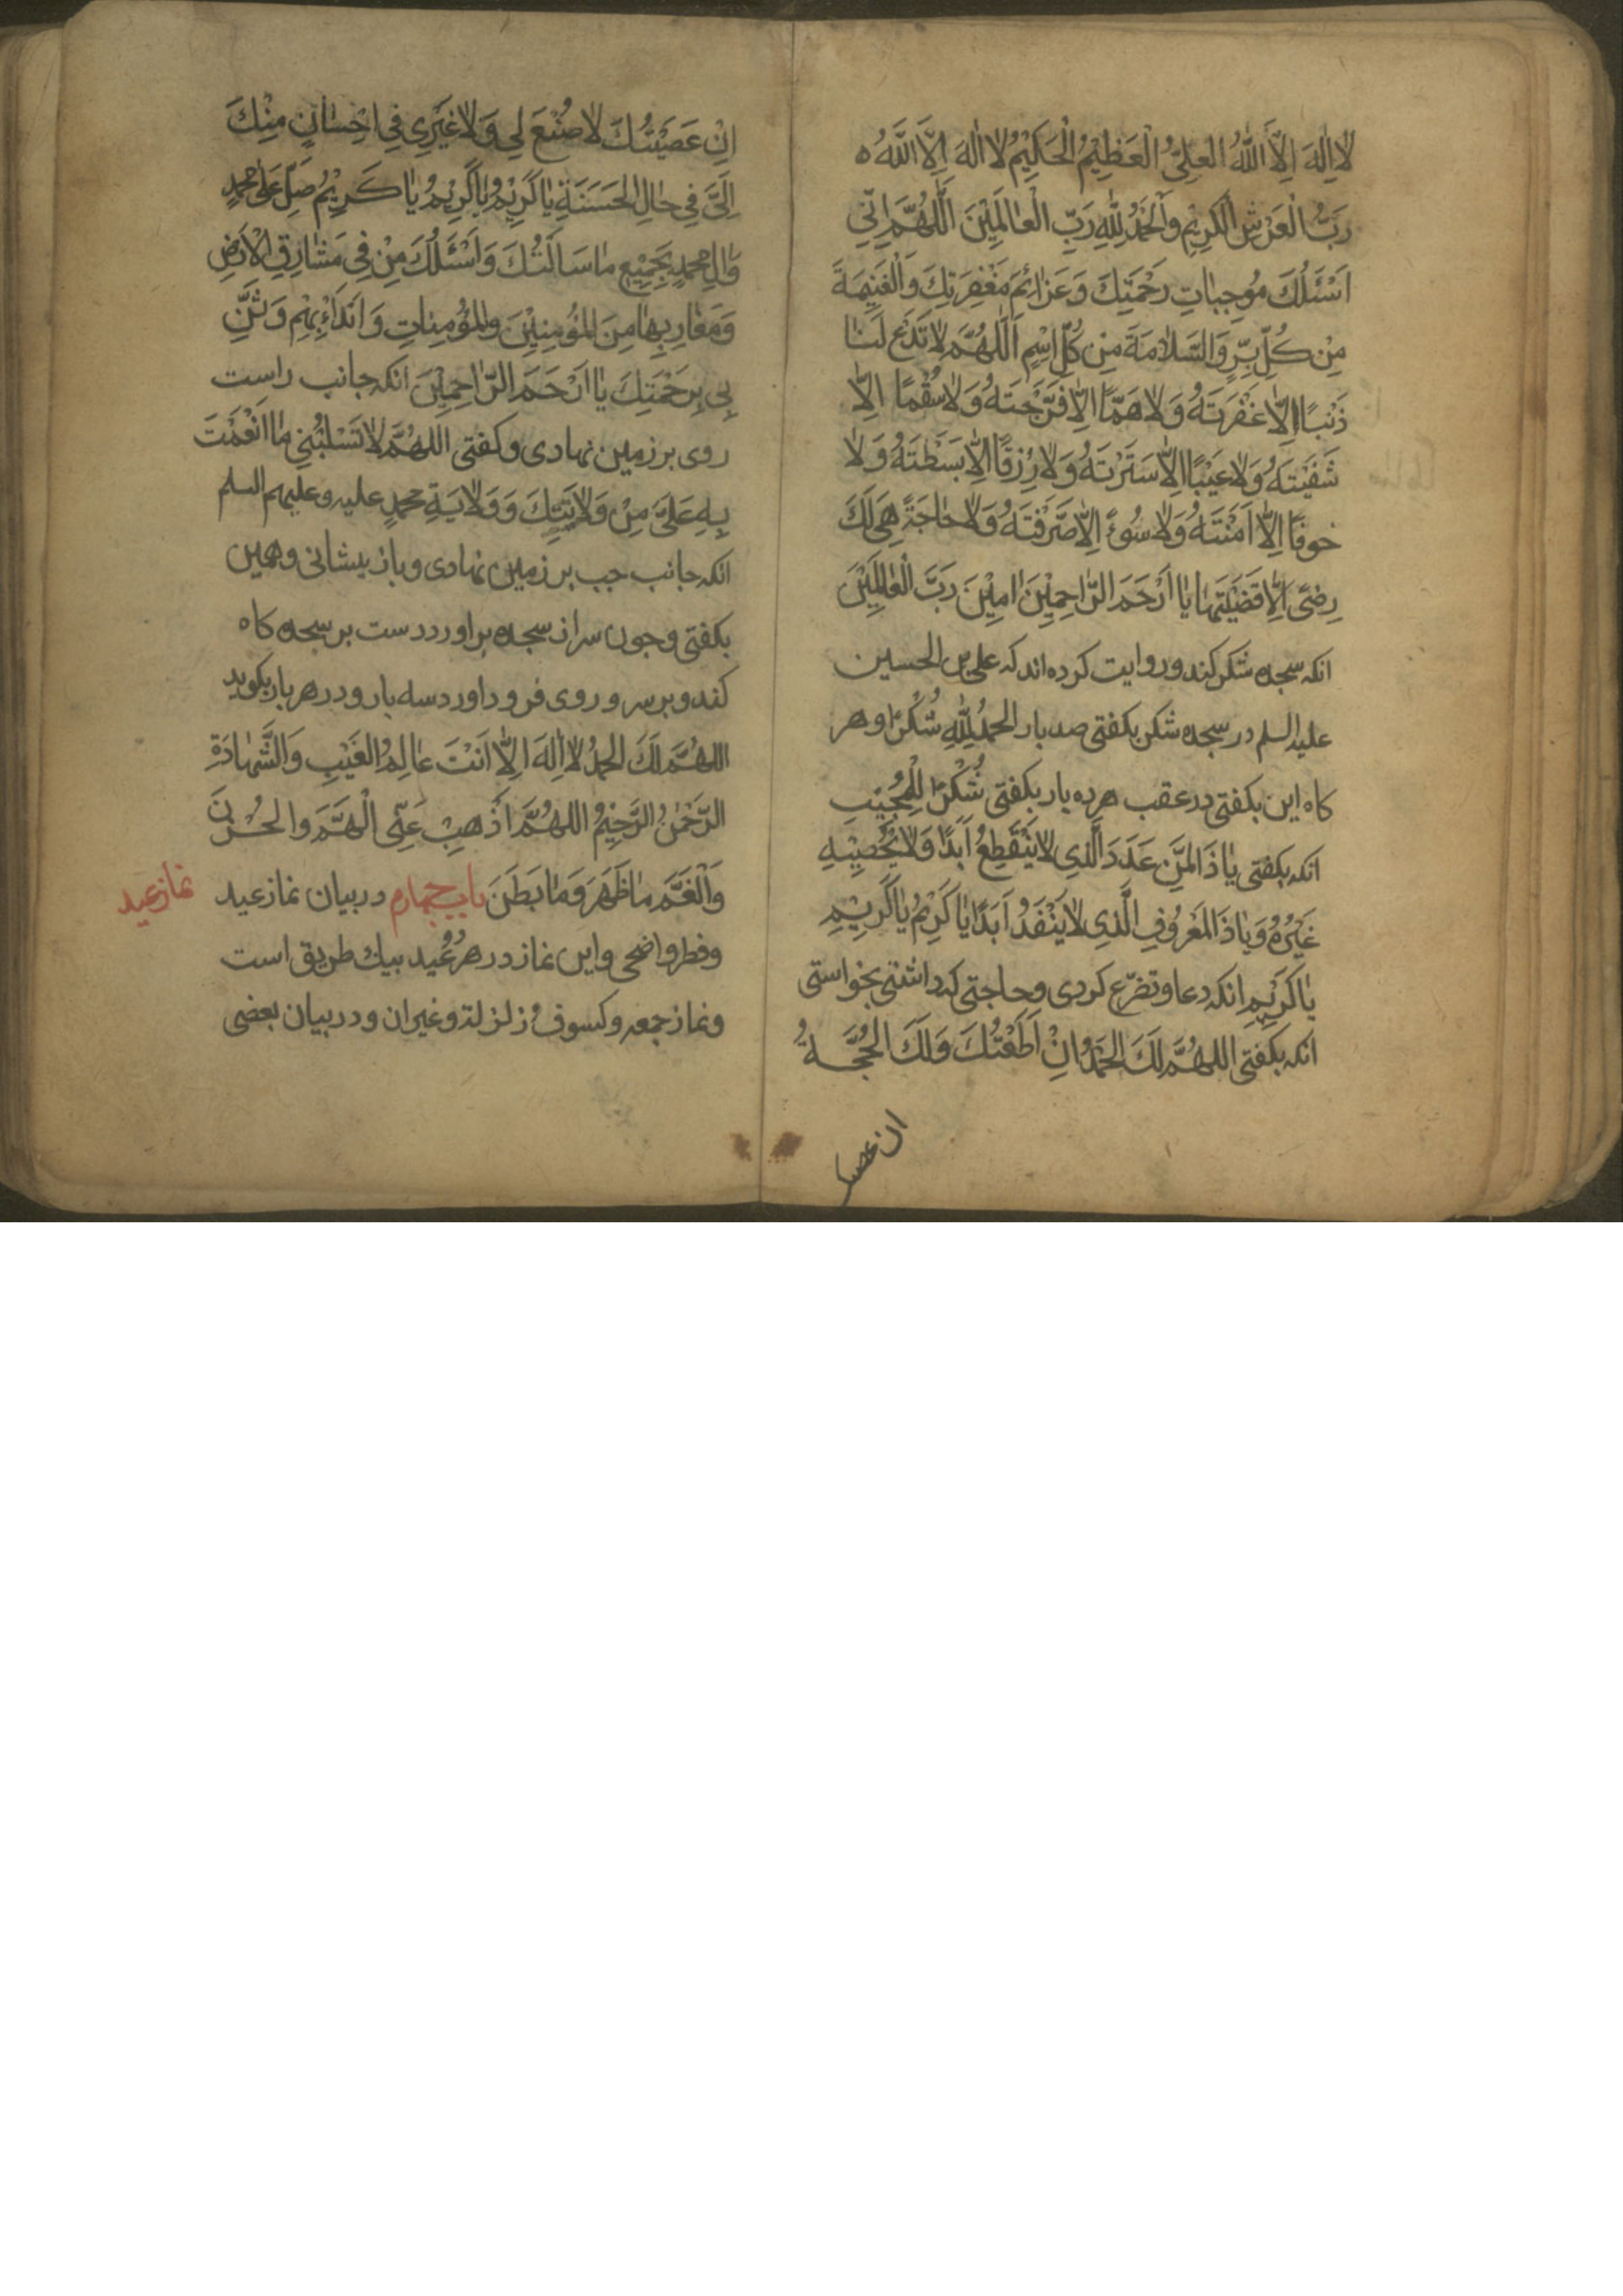 لا اِلٰهَ اِلاَّ اللّٰهُ الْعَلِيُّ الْعَظِيْمُ الْحَكِيْمُ لا اِلٰهَ اِلاَّ اللّٰهُ ه
رَبُّ الْعَرْشِ الْكَرِيْمِ وَالْحَمْدُ لِلّٰهِ رَبِّ الْعٰالَمِيْنَ اَللّٰهُمَّ اِنّي
اَسْئَلُكَ مُوجِبٰاتِ رَحْمَتِكَ وَعَزٰائِمَ مَغْفِرَتِكَ وَالْغَنِيْمَةَ
مِنْ كُلِّ بِرٍّ وَالسَّلاٰمَةَ مِنْ كُلِّ اِثْمٍ اَللّٰهُمَّ لاٰ تَدَعْ لَنٰا
ذَنْبًا اِلاّٰ غَفَرْتَهُ وَلاٰ هَمًّا اِلاّٰ فَرَّجْتَهُ وَلاٰ سُقْمًا اِلاّٰ
شَفَيْتَهُ وَلاٰ عَيْبًا اِلاّٰ سَتَرْتَهُ وَلاٰ رِزْقًا اِلاّٰ بَسَطْتَهُ وَلاٰ
خوفًا اِلاّٰ اَمَنْتَهُ وَلاٰ سُوءً اِلاّٰ صَرَفْتَهُ وَلاٰ حٰاجَةً هِيَ لَكَ
رِضًى اِلاّٰ قَضَيْتَهٰا يٰا اَرْحَمَ الرّٰاحِمِيْنَ اٰمِيْنَ رَبَّ الْعٰالَمِيْنَ
انكه سجده شكر كند وروايت كرده اند كه على بن الحسين
عليه السلم در سجده شكر بكفتى صد بار الحمدُ لِلّٰهِ شُكْرًا وهر
كاه اين بكفتى در عقب هر ده بار بكفتى شُكْرًا لِلْمُجِيْبِ
انكه بكفتى يٰا ذَا المَنِّ عَدَدَ الَّذِي لاٰ يَنْقَطِعُ اَبَدًا وَلاٰ يُحْصِيْهِ
غَيْرُهُ وَيٰا ذَا الْمَعْرُوْفِ الَّذِي لاٰ يَنْفَدُ اَبَدًا يٰا كَرِيْمُ يٰا كَرِيْمِ
يٰا كَرِيْمِ انكه دعا وتضرّع كردى وحاجتى كه داشتى بخواستى
انكه بكفتى اللهُمَّ لَكَ الحَمْدُ اِنْ اَطَعْتُكَ وَلَكَ الحُجَّةُ
ان عصيـ
اِنْ عَصَيْتُكَ لاٰ صُنْعَ لِي وَلاٰ غَيْرِي فِي اِحْسٰانٍ مِنْكَ
اِلَيَّ فِي حٰالِ الحَسَنَةِ يٰا كَرِيْمُ يٰا كَرِيْمُ يٰا كَرِيْمُ صَلِّ عَلٰى محمدٍ
وٰالِ محمدٍ بِجَمِيْعِ مٰا سَاَلْتُكَ وَاَسْئَلُكَ مِنْ فِي مَشٰارِقِ الْاَرْضِ
وَمَغٰارِبِهٰا مِنَ المُؤمِنِيْنَ والمؤْمِنٰاتِ وَابْدَاءْ بِهِمْ وَثَنِّ
بِي بِرَحْمَتِكَ يٰا اَرْحَمَ الرّٰاحِمِيْنَ انكه جانب راست
روى بر زمين نهادى وكفتى اللهُمَّ لاٰ تَسْلُبْنِي مٰا اَنْعَمْتَ
بِهِ عَلَيَّ مِنْ وَلاٰيَتِكَ وَوَلاٰيَةِ محمدٍ عليه وعليهم السلم
انكه جانب جب بر زمين نهادى وباز پيشانى وهمين
بكفتى وجون سر از سجده بر اورد دست بر سجده كاه
كند وبر سر و روى فرود اورد سه بار ودر هر بار بكويد
اللهُمَّ لَكَ الحمدُ لاٰ اِلٰهَ اِلاّٰ اَنْتَ عٰالِمُ الغَيْبِ وَالشَّهٰادَةِ
الرَّحْمٰنُ الرَّحِيْمُ اللهُمَّ اَذْهِبْ عَنّي الْهَمَّ والحُزْنَ
وَالْغَمَّ مٰا ظَهَرَ وَمٰا بَطَنَ باب جهارم در بيان نماز عيد
نماز عيد
وفطر واضحى واين نماز در هر دُو عيد بيك طريق است
ونماز جمعه وكسوف و زلزلة وغير ان ودر بيان بعضى